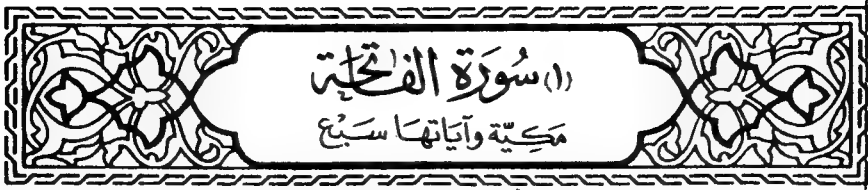 (١) سُورَة الفَاتِحَة
مَكِيّة وَآيَاتهَا سَبْع